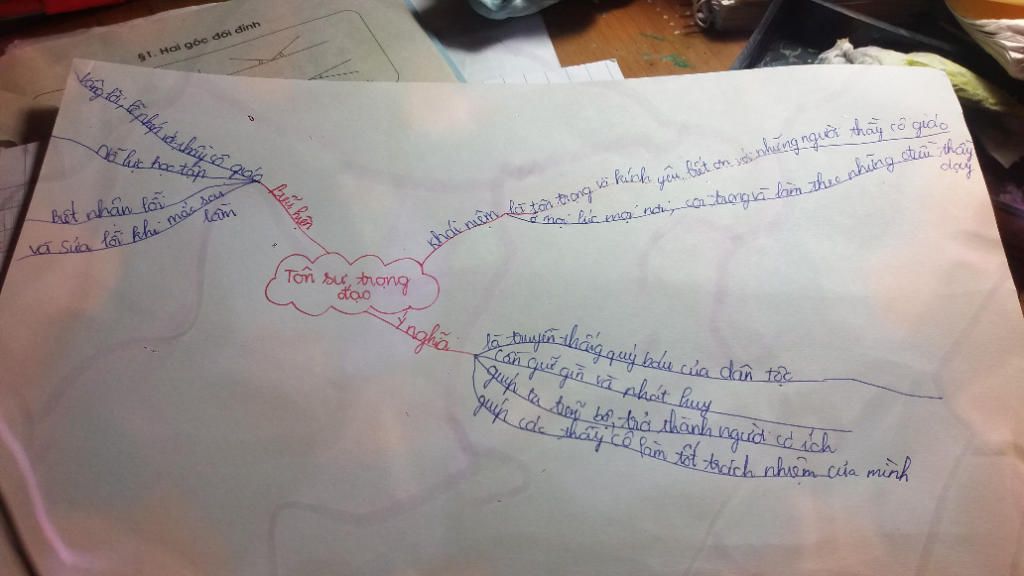 §1. Hai góc đối đỉnh
Vâng lời, lễ phép với thầy cô giáo
Nỗ lực học tập
Biết nhận lỗi
và sửa lỗi khi mắc sai
lầm
Biểu hiện
Tôn sư trọng
đạo
khái niệm
là tôn trọng và kính yêu, biết ơn với những người thầy cô giáo
ở mọi lúc mọi nơi, coi trọng và làm theo những điều thầy
dạy
Ý nghĩa
là truyền thống quý báu của dân tộc
cần giữ gìn và phát huy
giúp ta tiến bộ, trở thành người có ích
giúp các thầy cô làm tốt trách nhiệm của mình